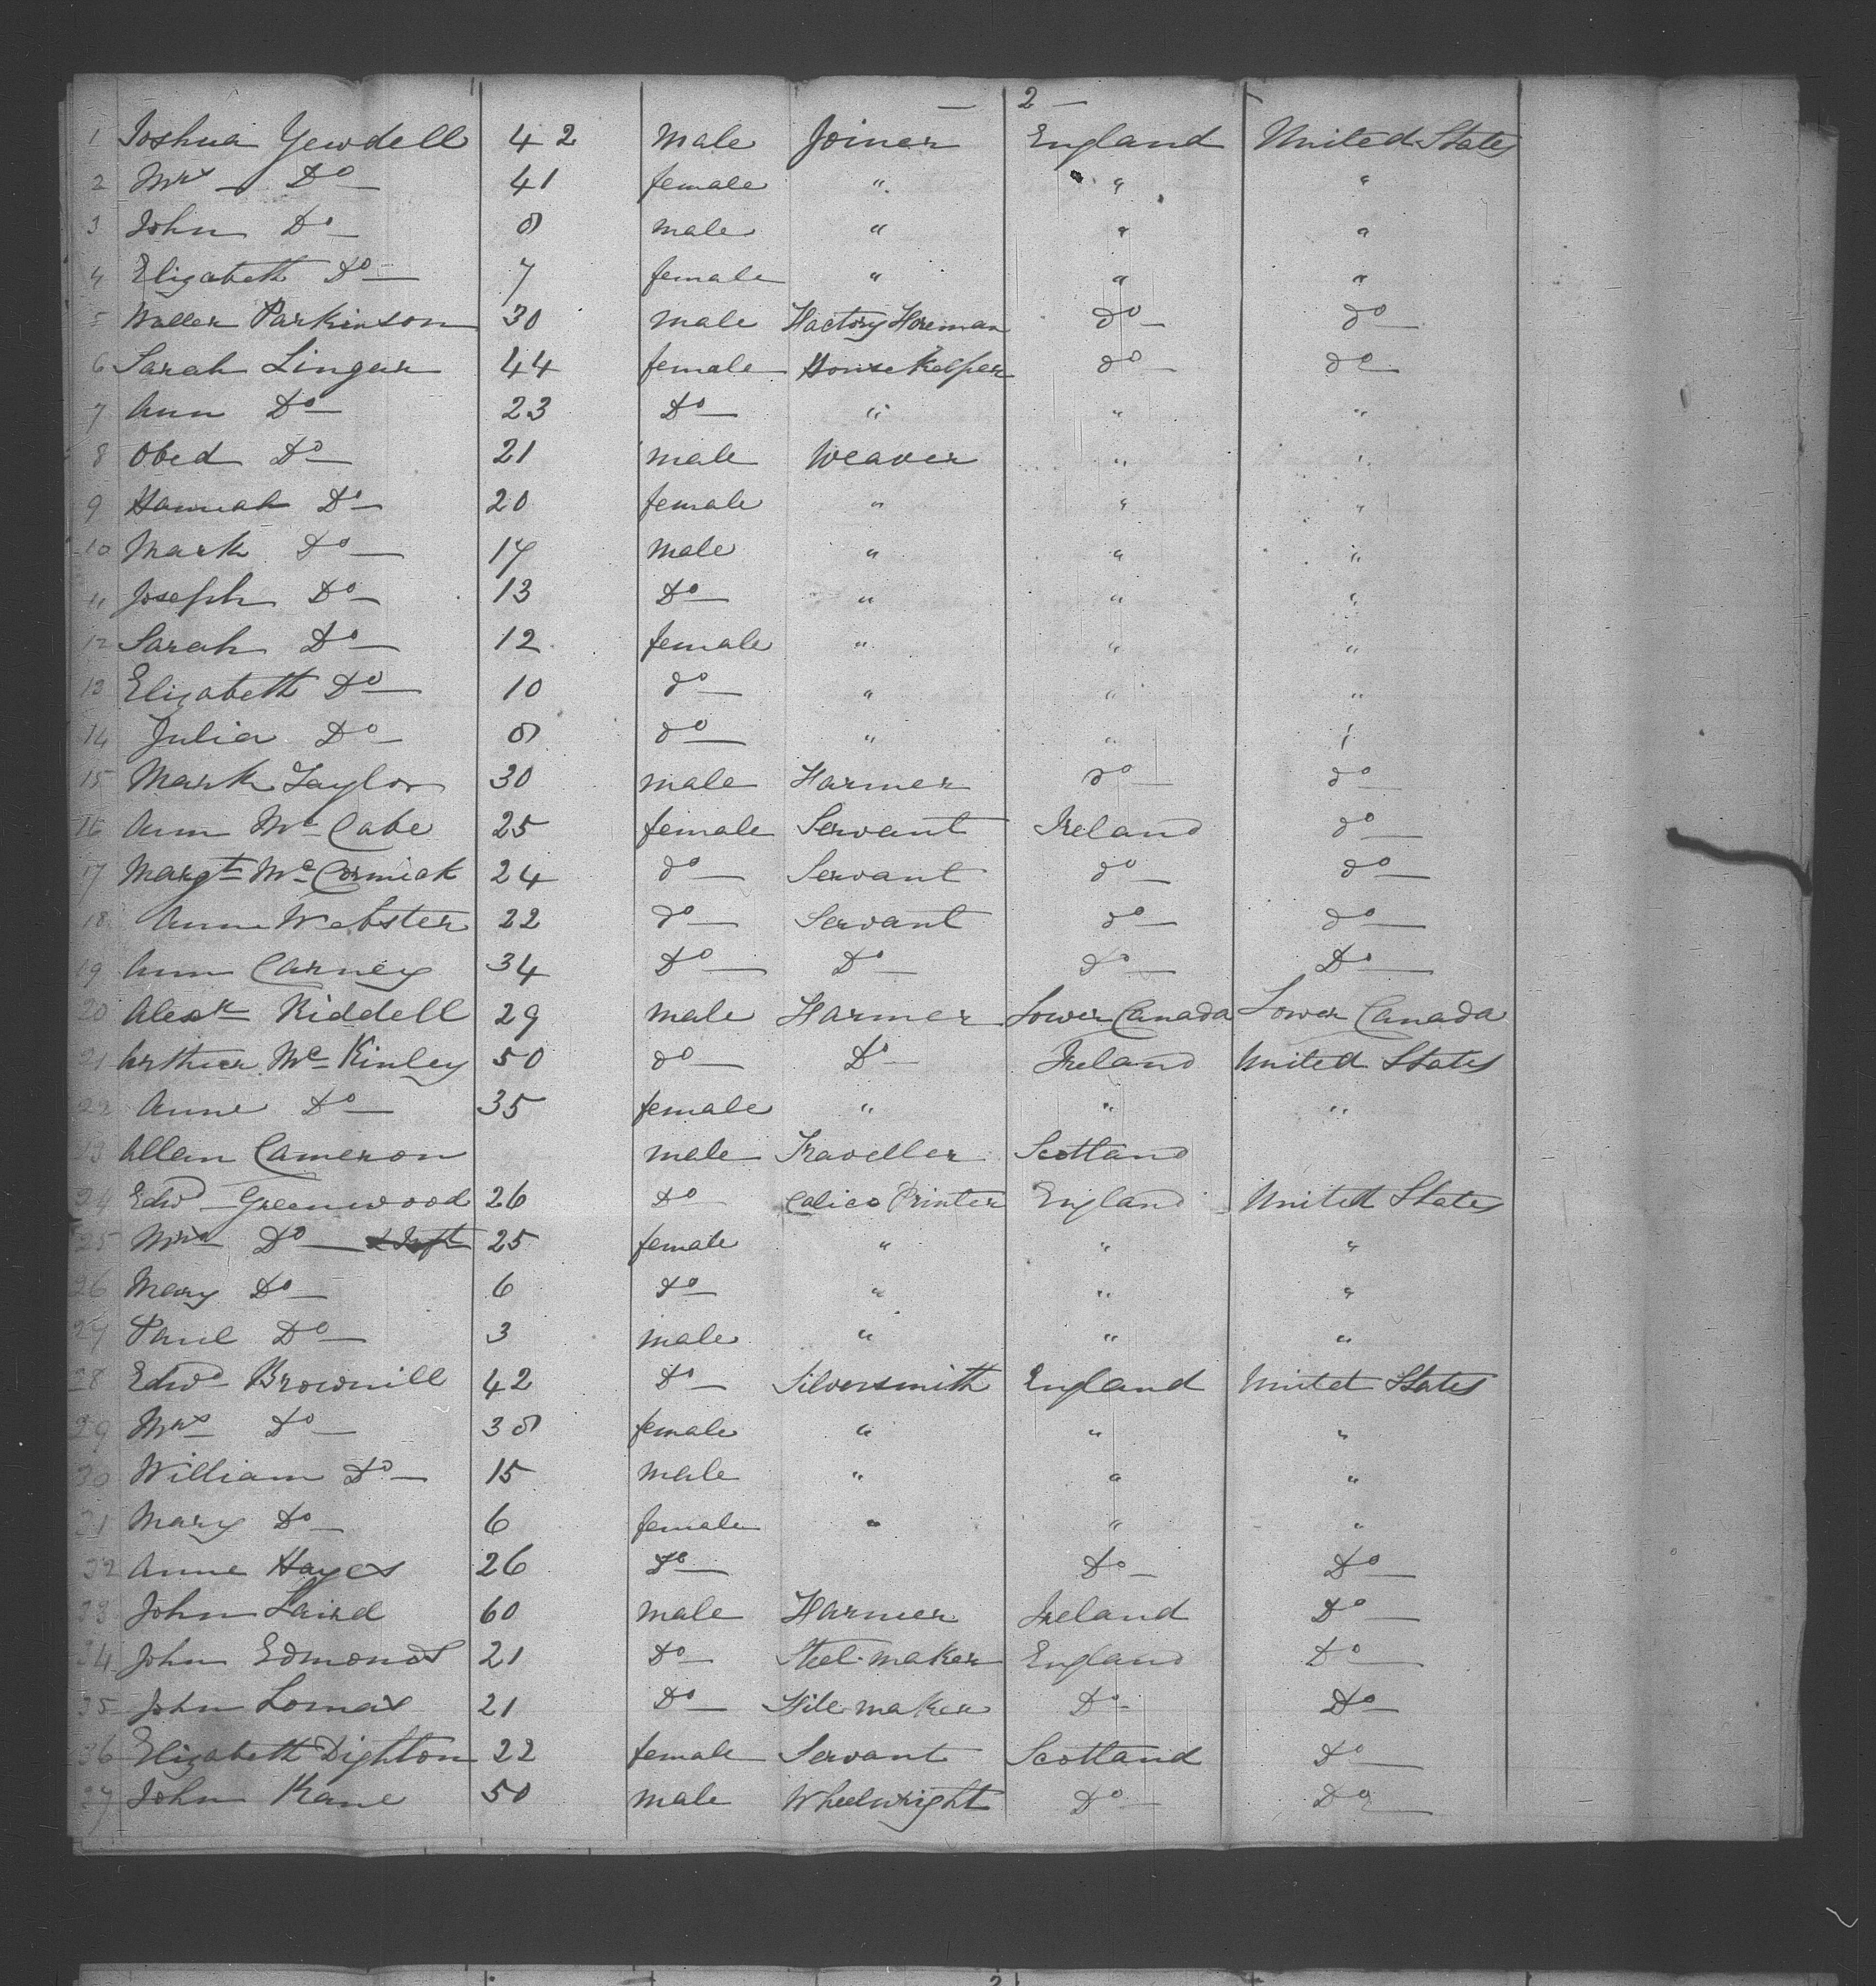 — 2 —
1 Joshua Yewdell 42 Male Joiner England United States
2 Mrs Do 41 female " " "
3 John Do 8 male " " "
4 Elizabeth Do 7 female " " "
5 Waller Parkinson 30 male Factory Foreman do do
6 Sarah Lingar 44 female House Keeper do do
7 Ann Do 23 Do " " "
8 Obed Do 21 male Weaver " "
9 Hannah Do 20 female " " "
10 Mark Do 17 Male " " "
11 Joseph Do 13 Do " " "
12 Sarah Do 12 female " " "
13 Elizabeth Do 10 do " " "
14 Julia Do 8 do " " "
15 Mark Taylor 30 male Farmer do do
16 Ann McCabe 25 female Servant Ireland do
17 Margt McCormick 24 do Servant do do
18 Anne Webster 22 do Servant do do
19 Ann Carney 34 Do Do do Do
20 Alexr Riddell 29 Male Farmer Lower Canada Lower Canada
21 Arthur McKinley 50 do Do Ireland United States
22 Anne Do 35 female " " "
23 Allan Cameron male Traveller Scotland
24 Edwd Greenwood 26 Do Calico Printer England United States
25 Mrs Do 25 female " " "
26 Mary Do 6 Do " " "
27 Paul Do 3 male " " "
28 Edwd Brownill 42 Do Silversmith England United States
29 Mrs Do 38 female " " "
30 William Do 15 Male " " "
31 Mary Do 6 female " " "
32 Anne Hayes 26 Do Do Do
33 John Laird 60 male Farmer Ireland Do
34 John Edmonds 21 Do Steel maker England Do
35 John Lomax 21 Do File maker Do Do
36 Elizabeth Dighton 22 female Servant Scotland Do
37 John Kane 50 male Wheelwright Do Do
2